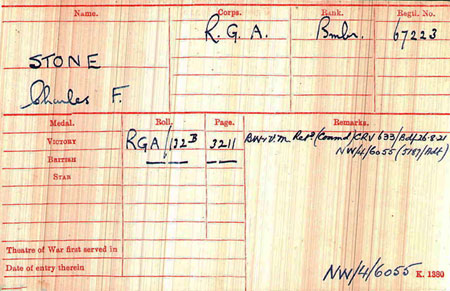 Name. Corps. Rank. Regtl. No.
STONE R. G. A. Bmbr. 67223
Charles F.
Medal. Roll. Page. Remarks.
VICTORY RGA/132B 3211 BW&V.M Retd (Commd) CRV 633/Adt/26.8.21
BRITISH NW/4/6055 (5187/Adt)
STAR
Theatre of War first served in
Date of entry therein
NW/4/6055 K. 1380